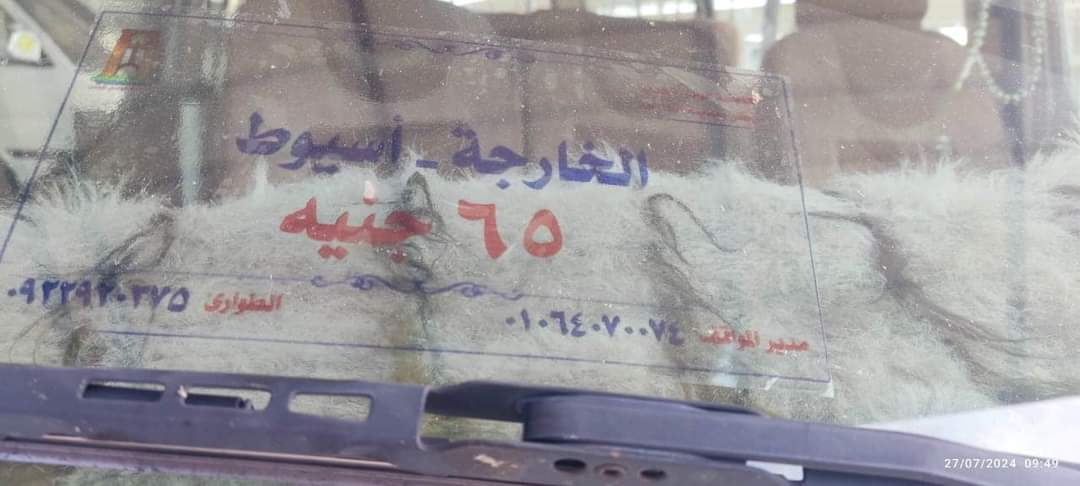 الخارجة - أسيوط
٦٥ جنيه
مدير المواقف ٠١٠٦٤٠٧٠٠٧٤
الطوارئ ٠٩٢٢٩٢٠٣٧٥
27/07/2024 09:49